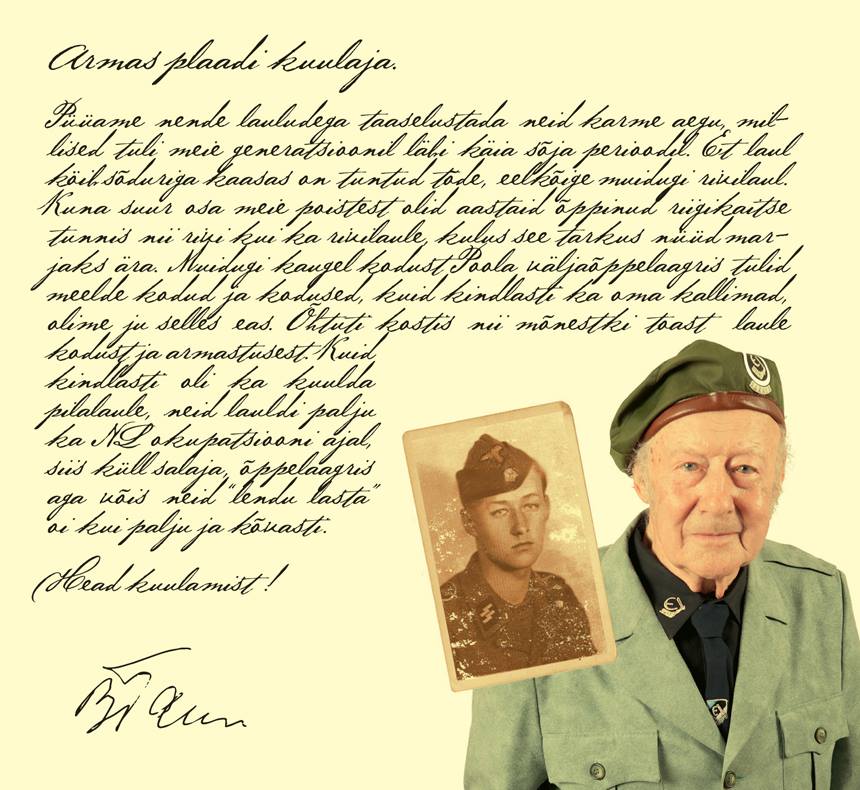 Armas plaadi kuulaja.
Püüame nende lauludega taaselustada neid karme aegu, mil-
lised tuli meie generatsioonil läbi käia sõja perioodil. Et laul
käib sõduriga kaasas on tuntud tõde, eelkõige muidugi rivilaul.
Kuna suur osa meie poistest olid aastaid õppinud riigikaitse
tunnis nii rivi kui ka rivilaule, kulus see tarkus nüüd mar-
jaks ära. Muidugi kaugel kodust, Poola väljaõppelaagris tulid
meelde kodud ja kodused, kuid kindlasti ka oma kallimad,
olime ju selles eas. Õhtuti kostis nii mõnestki toast laule
kodust ja armastusest. Kuid
kindlasti oli ka kuulda
pilalaule, neid lauldi palju
ka NL okupatsiooni ajal,
siis küll salaja, õppelaagris
aga võis neid "lendu lasta"
oi kui palju ja kõvasti.
Head kuulamist!